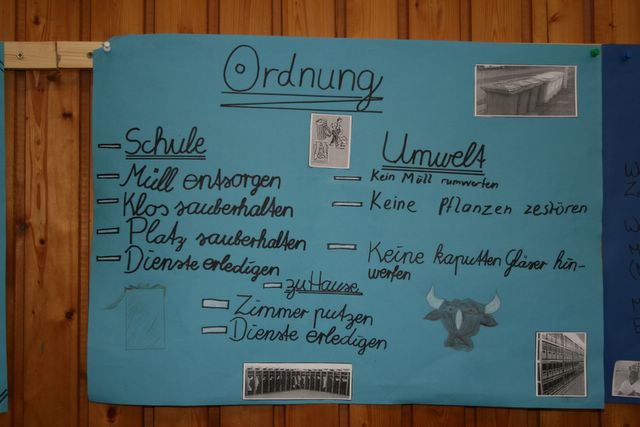 Ordnung
Schule
- Müll entsorgen
- Klos sauberhalten
- Platz sauberhalten
- Dienste erledigen
- zu Hause
- Zimmer putzen
- Dienste erledigen
Umwelt
- Kein Müll rumwerfen
- Keine Pflanzen zestören
- Keine kaputten Gläser hin-
werfen